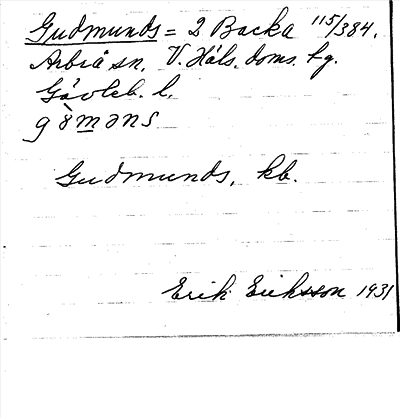 Gudmunds = 2 Backa 115/384.
Arbrå sn. V. Häls. doms. tg.
Gävleb. l.
gò̀mǝns
Gudmunds, kb.
Erik Eriksson 1931